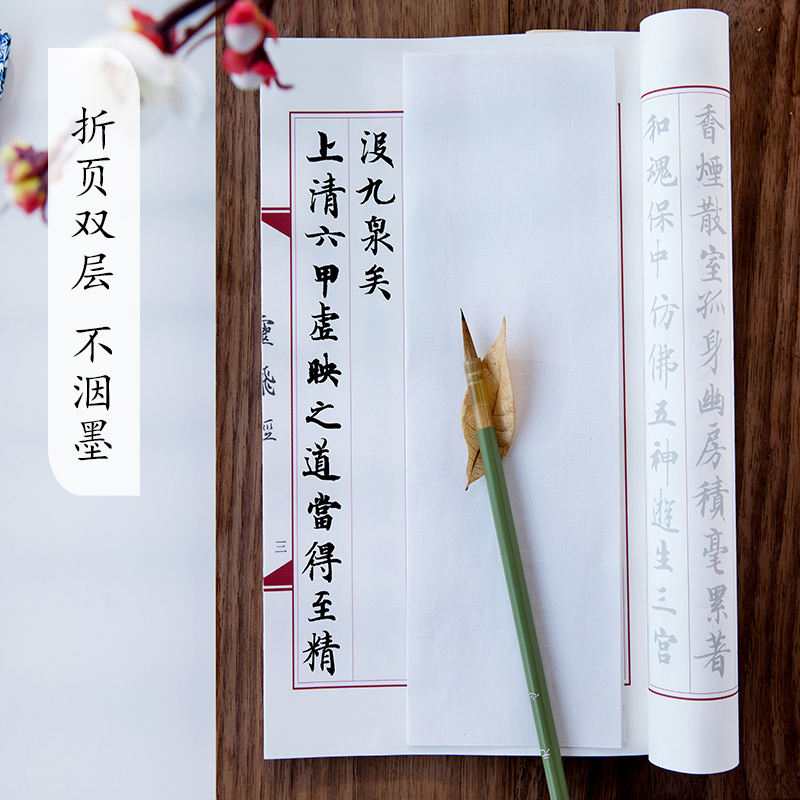 折页双层 不洇墨
香煙散室孤身幽房積毫累著
和魂保中仿佛五神遊生三宫
没九泉矣
上清六甲虚映之道當得至精
靈飛經
三